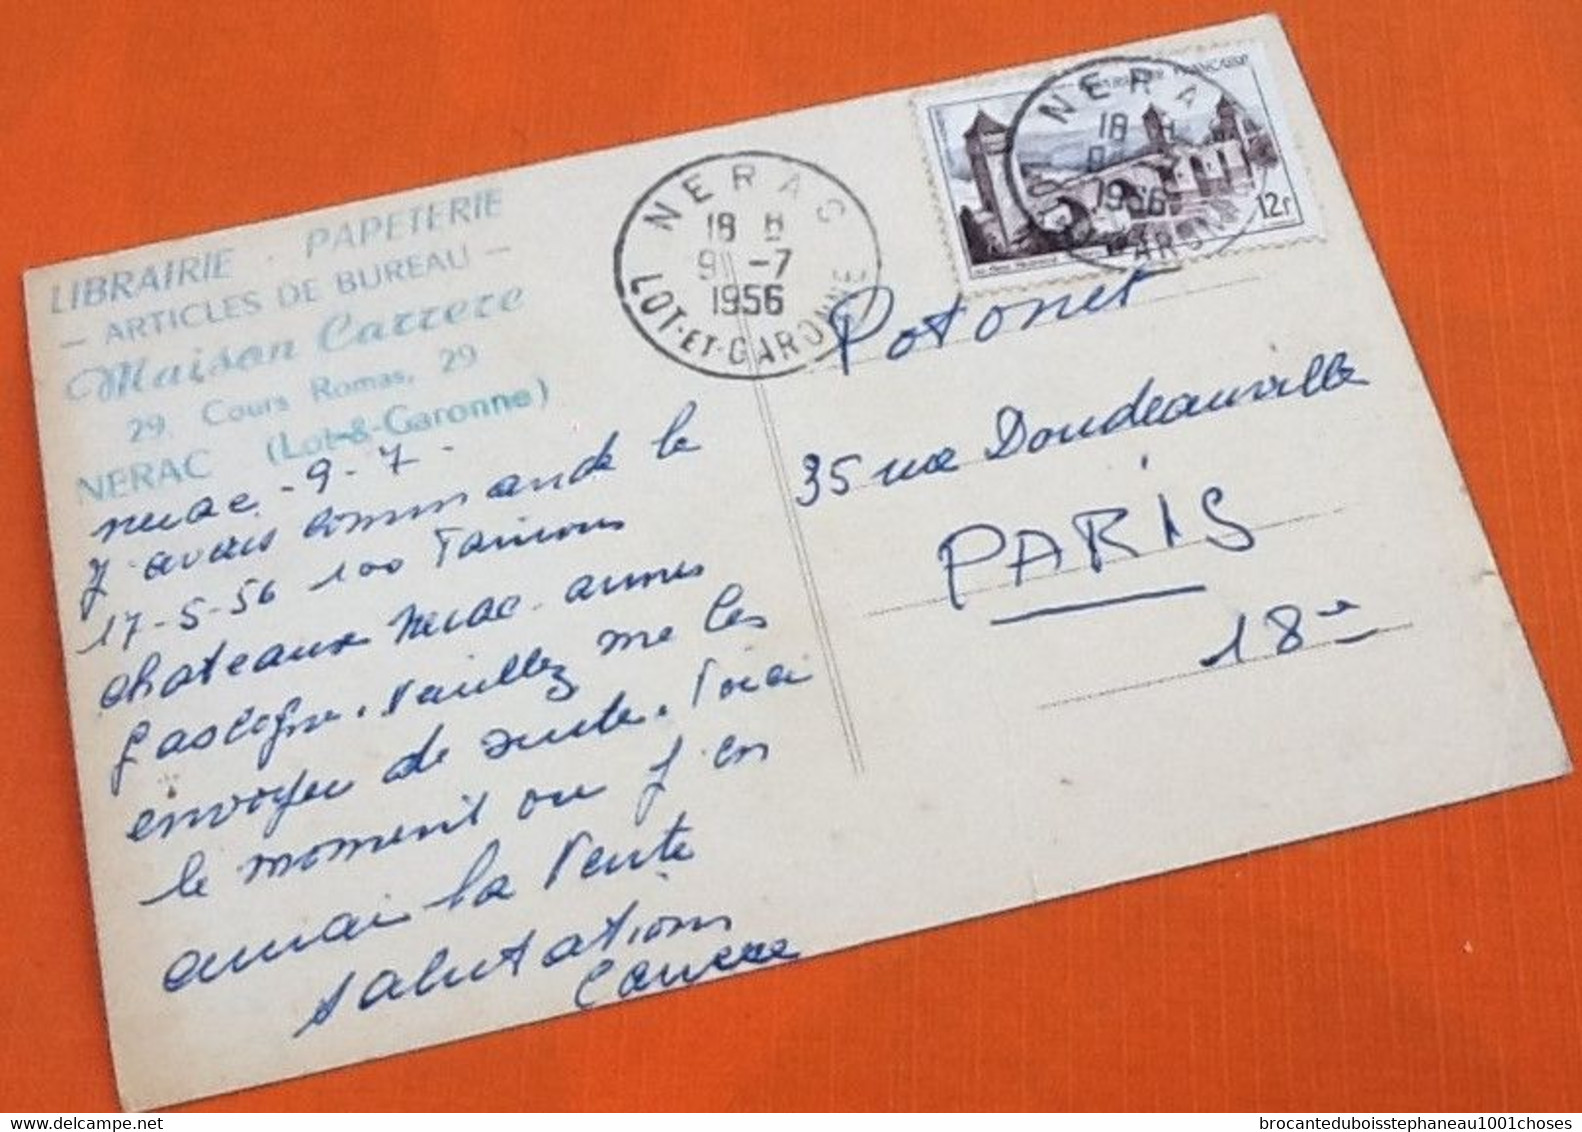 LIBRAIRIE . PAPETERIE
- ARTICLES DE BUREAU -
Maison Carrere
29, Cours Romas, 29
NERAC (Lot-&-Garonne)
nerac - 9 - 7 -
J'avais commande le
17-5-56 100
chateaux nerac armes
gascogne. Veuillez me les
envoyer de suite. Voici
le moment ou j'en
aurai la vente
salutations
Carrere
NERAC
18 H
9 -7
1956
LOT-ET-GARONNE
FRANÇAISE
12F
NERAC
18 H
1956
GARONNE
Potonet
35 rue Doudeauville
PARIS
18e
brocanteduboisstephaneau1001choses